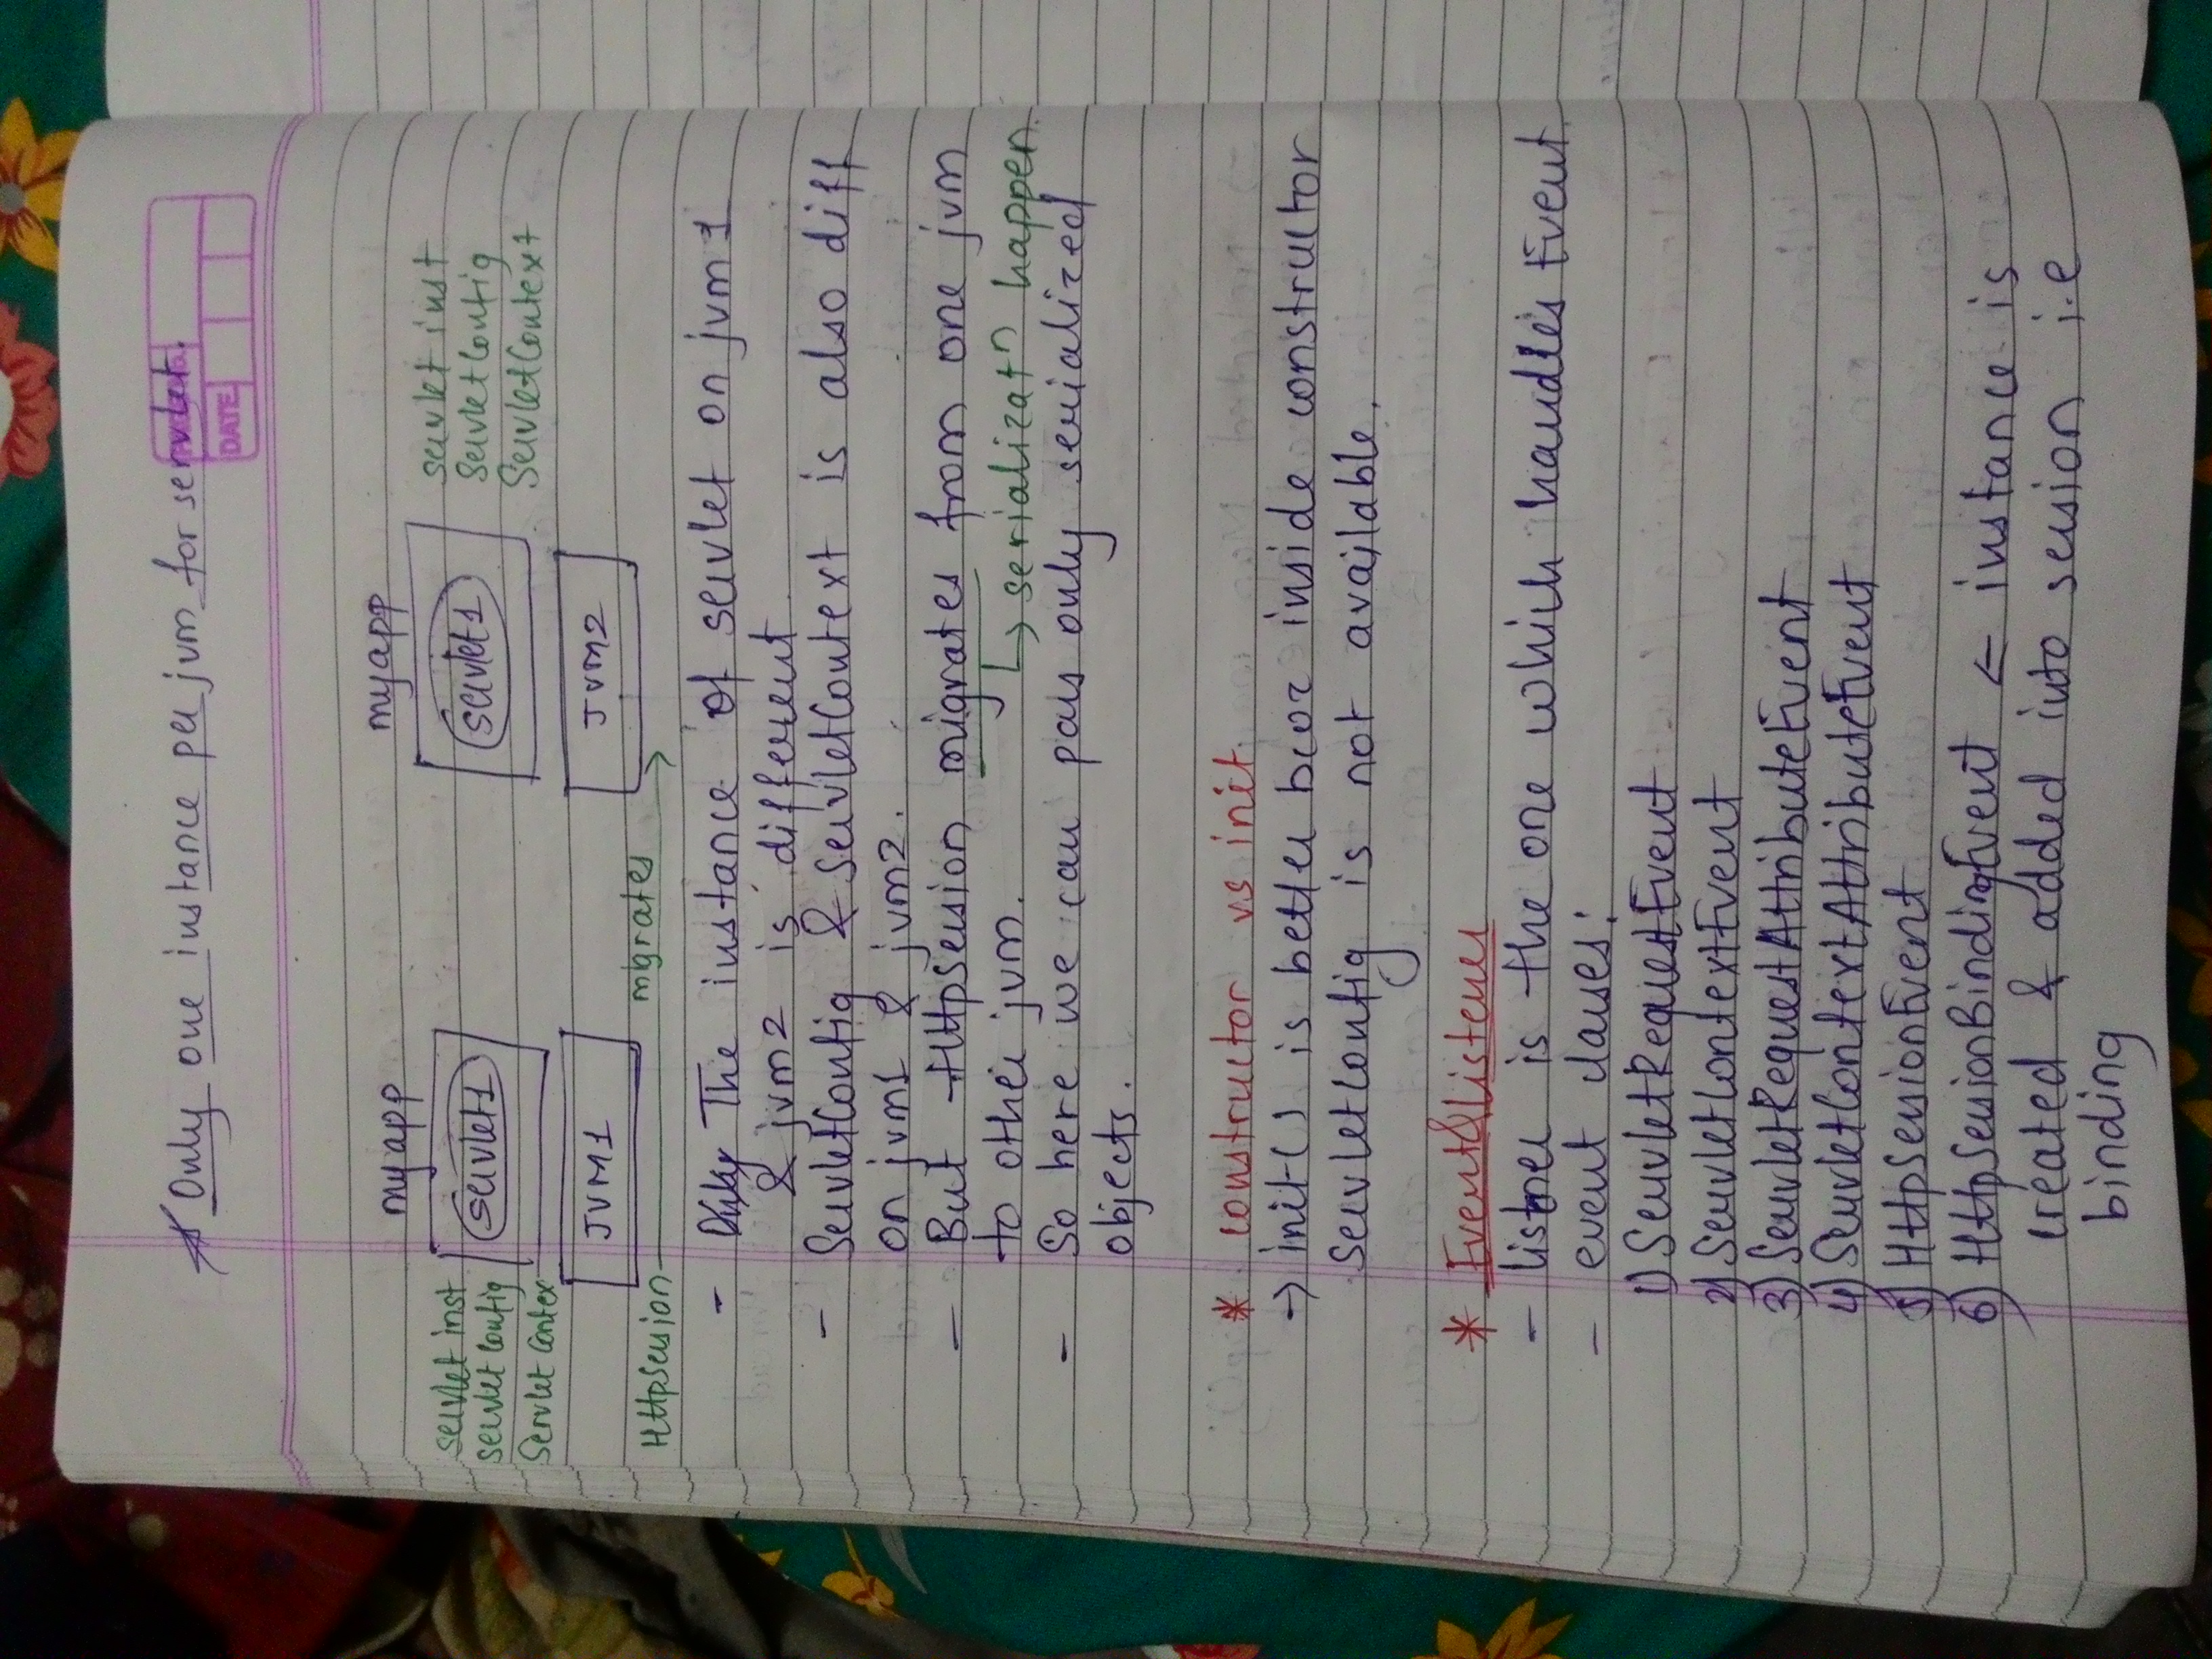 * Only one instance per jvm for servlet.
DATE
myapp
myapp
servlet inst
servlet config
Servlet Contex
servlet1
servlet1
servlet inst
ServletConfig
ServletContext
JVM1
JVM2
HttpSession
migrates
- Only The instance of servlet on jvm1
& jvm2 is different
- ServletConfig & ServletContext is also diff
on jvm1 & jvm2.
- But HttpSession migrates from one jvm
to other jvm. ↳ serializatn happen
- So here we can pass only serialized
objects.
* constructor vs init.
→ init() is better bcoz inside constructor
servletConfig is not available.
* Event&listener
- listner is the one which handles Event
- event classes:
1) ServletRequestEvent
2) ServletContextEvent
3) ServletRequestAttributeEvent
4) ServletContextAttributeEvent
5) HttpSessionEvent
6) HttpSessionBindingEvent ← instance is
created & added into session i.e
binding